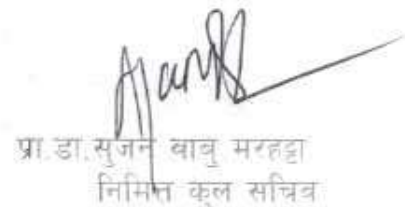 प्रा.डा.सुजन बाबु मरहट्टा
निमित्त कुल सचिव